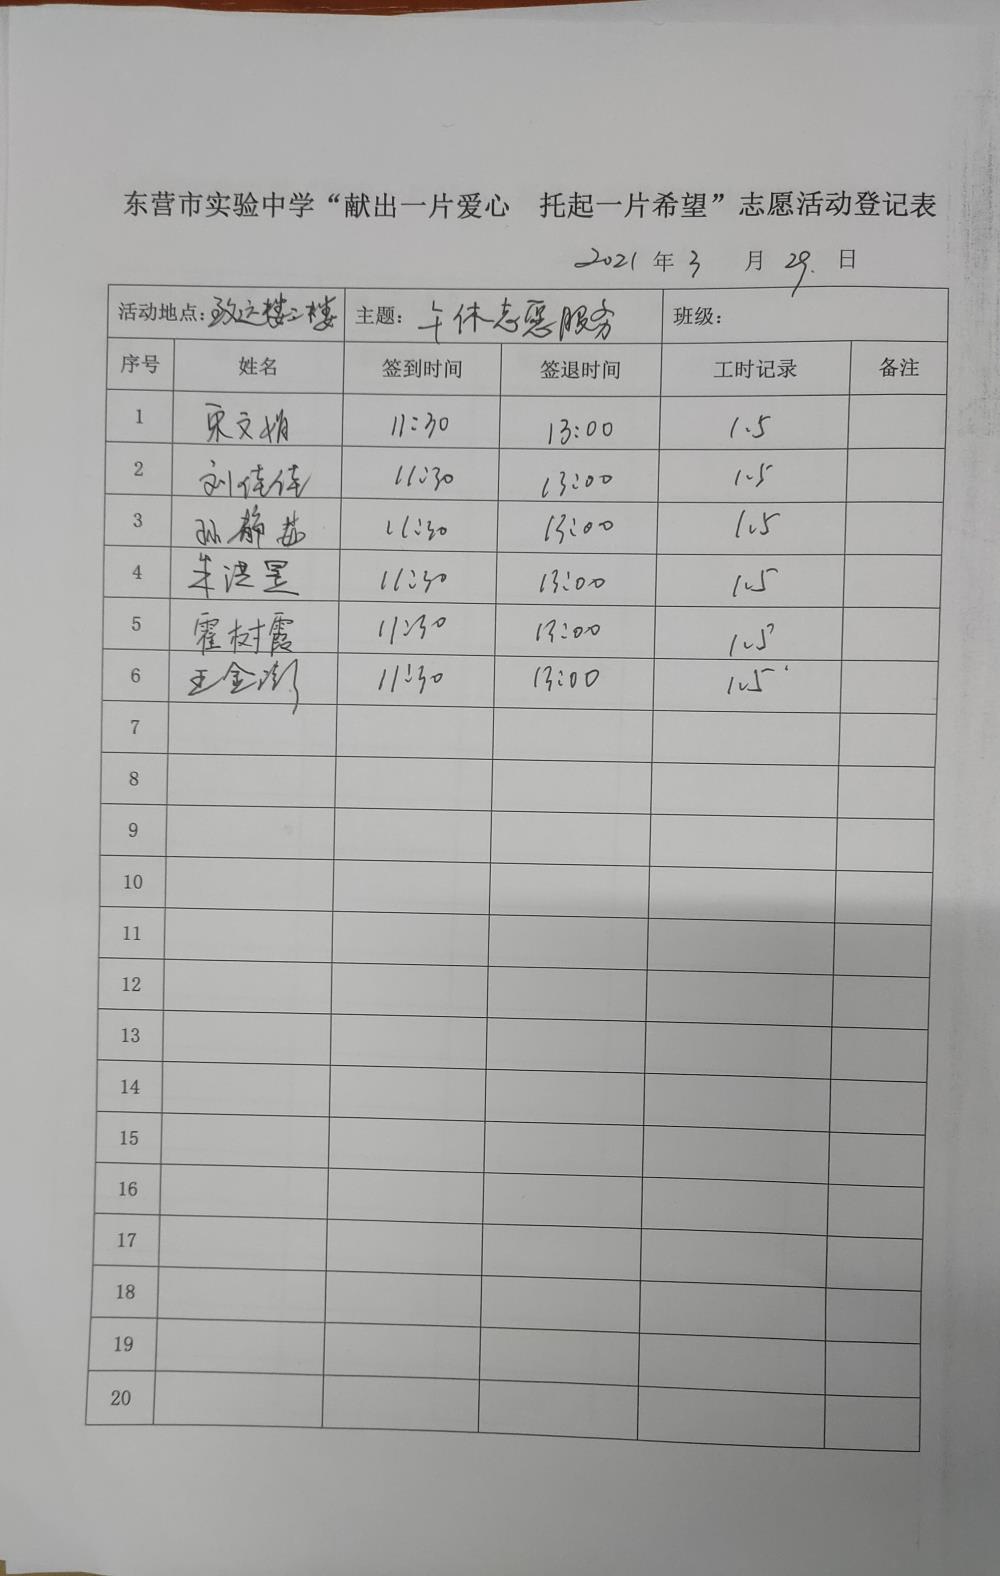 东营市实验中学“献出一片爱心 托起一片希望”志愿活动登记表
2021 年 3 月 29 日
活动地点：致远楼二楼 主题：午休志愿服务 班级：
序号 姓名 签到时间 签退时间 工时记录 备注
1 宋文娟 11:30 13:00 1.5
2 刘佳佳 11:30 13:00 1.5
3 孙静茹 11:30 13:00 1.5
4 朱洪昱 11:30 13:00 1.5
5 霍树霞 11:30 13:00 1.5
6 王金澎 11:30 13:00 1.5
7
8
9
10
11
12
13
14
15
16
17
18
19
20